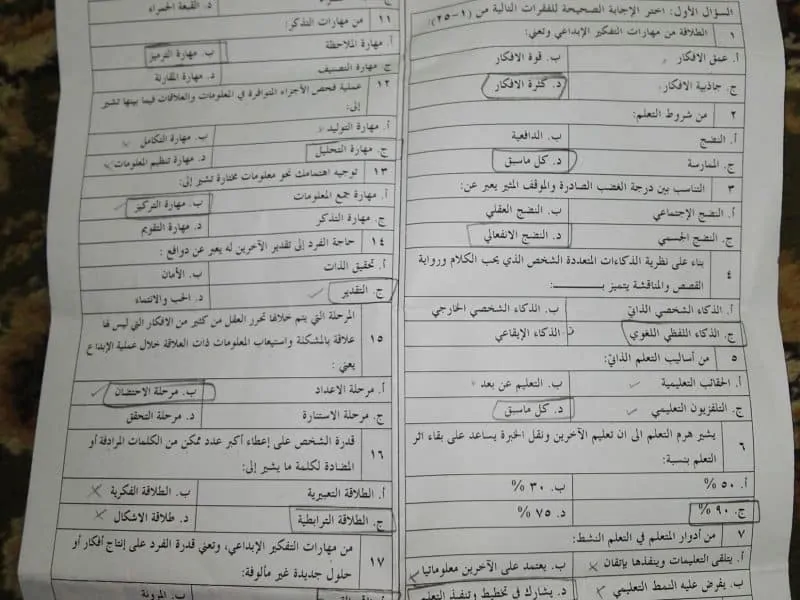 السؤال الأول: اختر الإجابة الصحيحة للفقرات التالية من (١-٢٥):
١ الطلاقة من مهارات التفكير الإبداعي وتعني:
أ. عمق الافكار ب. قوة الافكار
ج. جاذبية الافكار د. كثرة الافكار
٢ من شروط التعلم:
أ. النضج ب. الدافعية
ج. الممارسة د. كل ماسبق
٣ التناسب بين درجة الغضب الصادرة والموقف المثير يعبر عن:
أ. النضج الإجتماعي ب. النضج العقلي
ج. النضج الجسمي د. النضج الانفعالي
٤ بناء على نظرية الذكاءات المتعددة الشخص الذي يحب الكلام ورواية
القصص والمناقشة يتميز بـ
أ. الذكاء الشخصي الذاتي ب. الذكاء الشخصي الخارجي
ج. الذكاء اللفظي اللغوي الذكاء الإيقاعي
٥ من أساليب التعلم الذاتي:
أ. الحقائب التعليمية ب. التعليم عن بعد
ج. التلفزيون التعليمي د. كل ماسبق
٦ يشير هرم التعلم الى ان تعليم الآخرين ونقل الخبرة يساعد على بقاء اثر
التعلم بنسبة:
أ. ٥٠ % ب. ٣٠ %
ج. ٩٠ % د. ٧٥ %
٧ من أدوار المتعلم في التعلم النشط:
أ. يتلقى التعليمات وينفذها بإتقان ب. يعتمد على الآخرين معلوماتيا
ب. يفرض عليه النمط التعليمي د. يشارك في تخطيط وتنفيذ التعلم
د. القبعة الحمراء
١١ من مهارات التذكر:
أ. مهارة الملاحظة ب. مهارة الترميز
ج. مهارة التصنيف د. مهارة المقارنة
١٢ عملية فحص الأجزاء المتوافرة في المعلومات والعلاقات فيما بينها تشير
إلى:
أ. مهارة التوليد ب. مهارة التكامل
ج. مهارة التحليل د. مهارة تنظيم المعلومات
١٣ توجيه اهتمامك نحو معلومات مختارة تشير إلى:
أ. مهارة جمع المعلومات ب. مهارة التركيز
ج. مهارة التذكر د. مهارة التقويم
١٤ حاجة الفرد إلى تقدير الآخرين له يعبر عن دوافع:
أ. تحقيق الذات ب. الأمان
ج. التقدير د. الحب والانتماء
المرحلة التي يتم خلالها تحرر العقل من كثير من الافكار التي ليس لها
١٥ علاقة بالمشكلة واستيعاب المعلومات ذات العلاقة خلال عملية الإبداع
يعني:
أ. مرحلة الاعداد ب. مرحلة الاحتضان
ج. مرحلة الاستنارة د. مرحلة التحقق
١٦ قدرة الشخص على إعطاء أكبر عدد ممكن من الكلمات المرادفة أو
المضادة لكلمة ما يشير إلى:
أ. الطلاقة التعبيرية ب. الطلاقة الفكرية
ج. الطلاقة الترابطية د. طلاقة الاشكال
١٧ من مهارات التفكير الإبداعي، وتعني قدرة الفرد على إنتاج أفكار أو
حلول جديدة غير مألوفة:
ب. المرونة